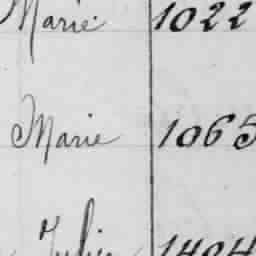 Marie 1022
Marie 1065
Julie 1404